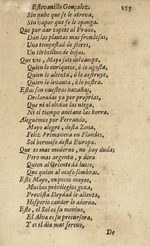 Estevanillo Gonçalez. 255
Sin nube que se le atreva,
Sin vapor que se le oponga.
Que por dar tapete al Prado,
Dan las plantas mas frondosas,
Una tempestad de flores,
Un torbellino de hojas.
Que vos, Mayo sois del campo,
Quien lo enriqueze, ò lo
Quien lo alienta, ò lo
Quien lo levanta, ò lo postra.
Estas son vuestras hazañas,
Declaradas ya por proprias,
Que ni el olvido las niega,
Ni el tiempo anciano las borra.
Alegrenos por Fernando,
Mayo alegre, desta Zona,
Feliz Primavera en Flandes,
Sol hermoso desta Europa.
Que es mas moderno, no hay duda
Pero mas argenta, y dora
Quien al Oriente dà luzes,
Que quien al ocaso sombras.
Este Mayo, en pocos mayos,
Muchos privilegios goza,
Precisa Deydad le alienta,
Hesperio candor le adorna.
Este, el Sol es su nombre,
El Alva es su precursora,
Y es el dia mas sereno,
De